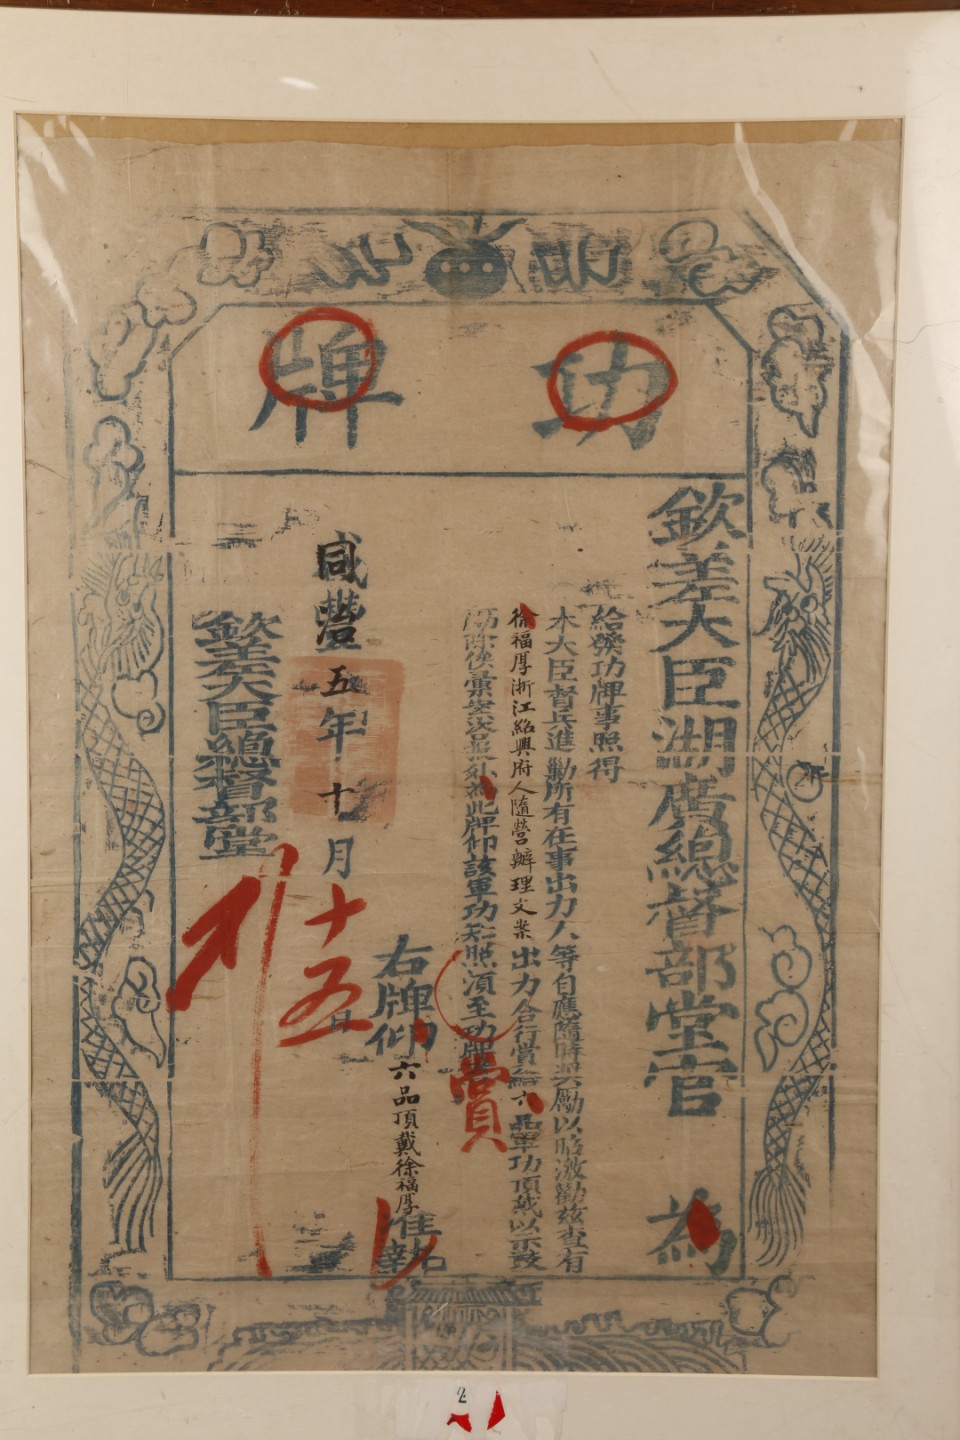 功牌
欽差大臣湖廣總督部堂官 為
給發功牌事照得
本大臣督兵進勦所有在事出力人等自應隨時獎勵以昭激勸茲查有
徐福厚浙江紹興府人隨營辦理文案出力合行賞給六品軍功頂戴以示鼓
勵除俟彙案次奏外為此牌仰該軍功知照須至功牌者
賞
右牌仰六品頂戴徐福厚准執
咸豐五年十月十五日
欽差大臣總督部堂
2